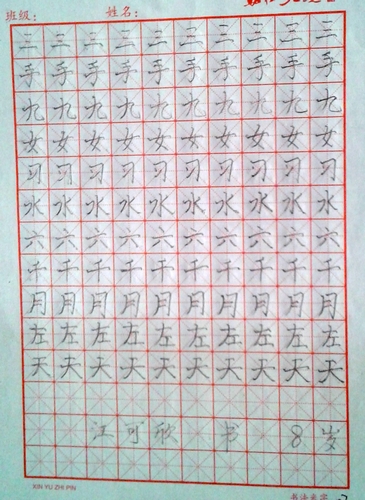 班级： 姓名：
三三三三三三三三三三
手手手手手手手手手手
九九九九九九九九九九
女女女女女女女女女女
习习习习习习习习习习
水水水水水水水水水水
六六六六六六六六六六
千千千千千千千千千千
月月月月月月月月月月
左左左左左左左左左左
天天天天天天天天天天
江可欣 书 8岁
XIN YU ZHI PIN